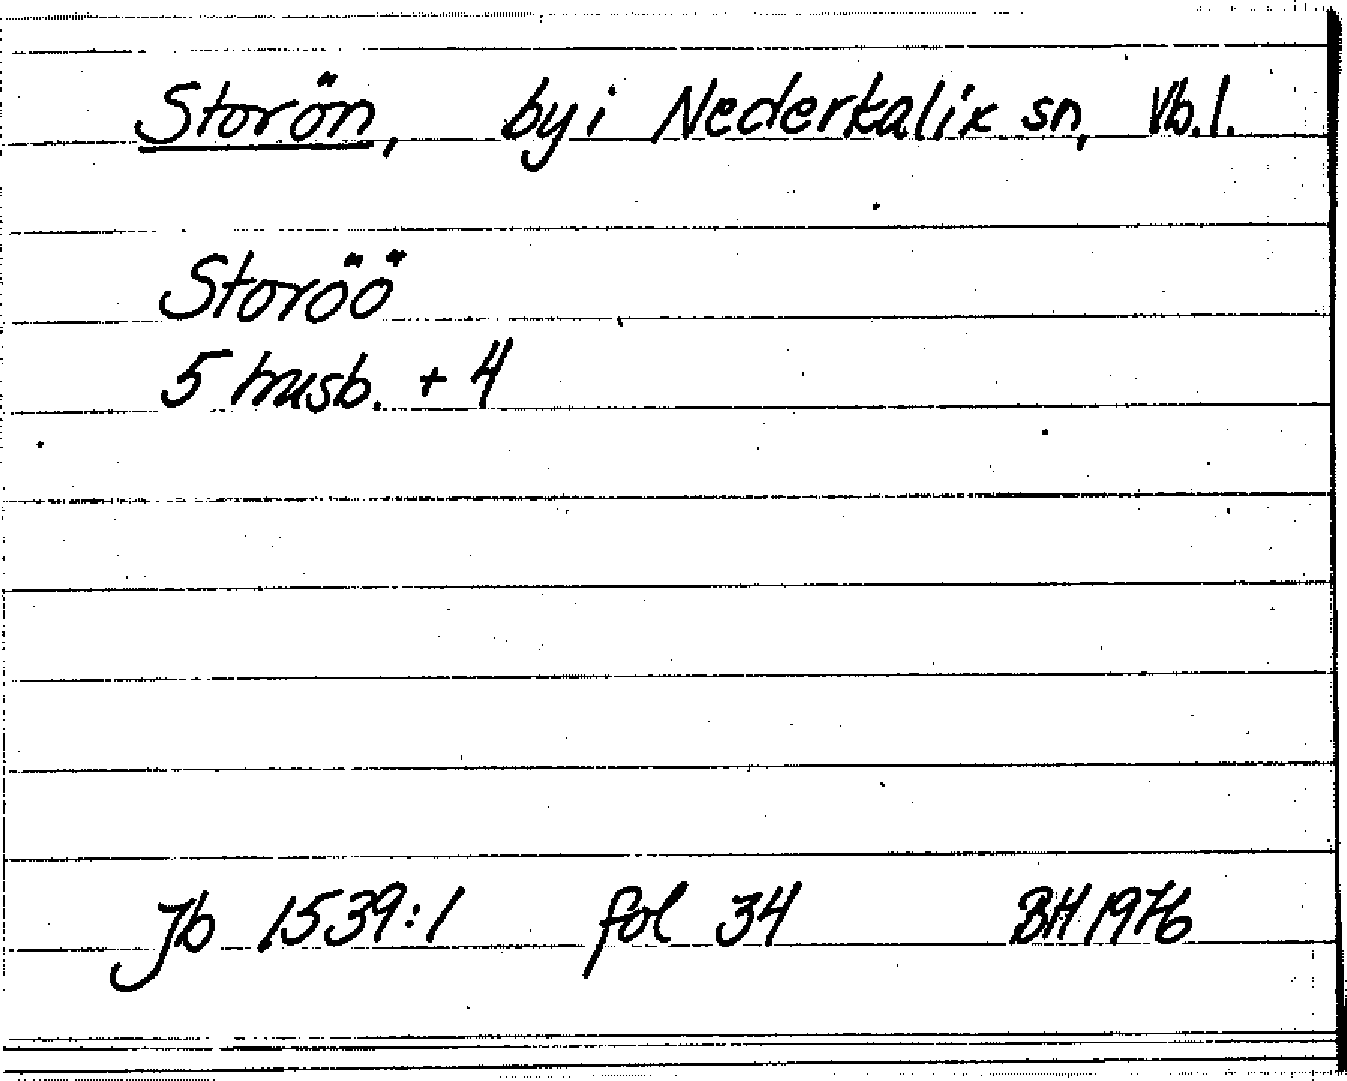 Storön, by i Nederkalix sn, Vb.l.
Storöö
5 husb. + 4
Jb 1539:1 fol 34 BH 1976